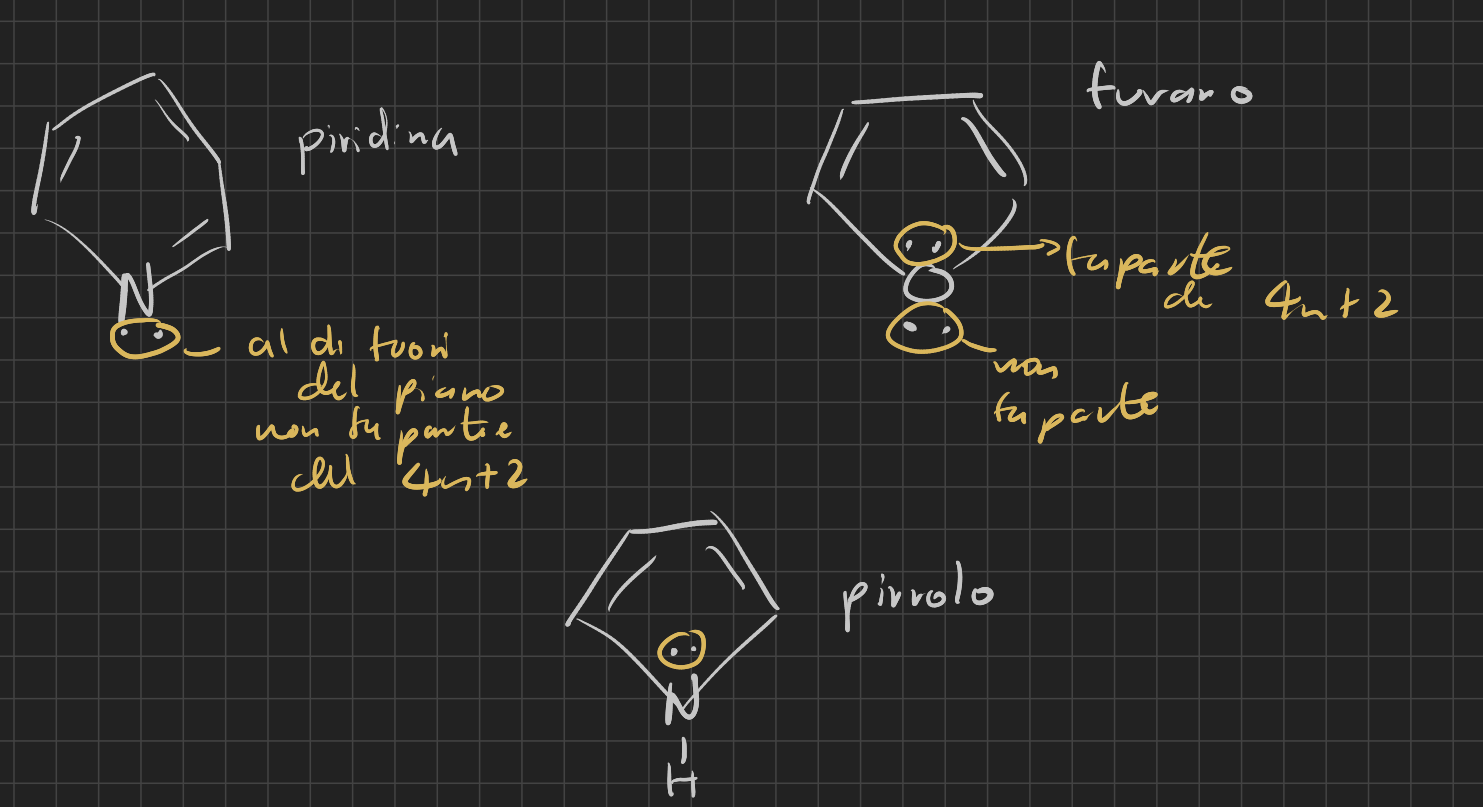 piridina
N
al di fuori
del piano
non fa parte
del 4n+2
furano
fa parte
di 4n+2
O
non
fa parte
pirrolo
N
H